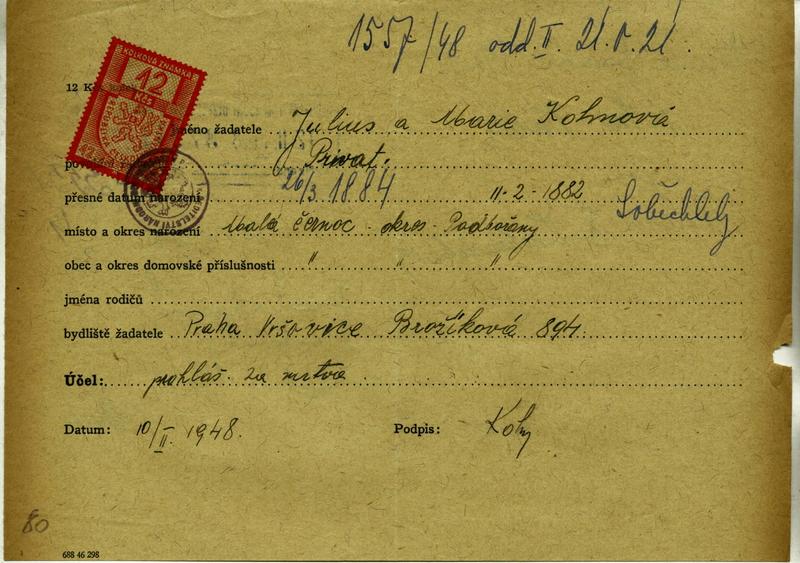 1557/48 odd. II. 21. V. 21.
KOLKOVÁ ZNÁMKA
12
Kčs
12 K
jméno žadatele Julius a Marie Kohnová
Privat.
přesné datum narození 26/3 1884 11-2-1882
Soběchleby
místo a okres narození Malá černoc okres Podbořany
obec a okres domovské příslušnosti " " "
jména rodičů
bydliště žadatele Praha Vršovice Brožíková 894.
Účel: prohláš. za mrtva
Datum: 10/II. 1948. Podpis: Kohn
80
688 46 298